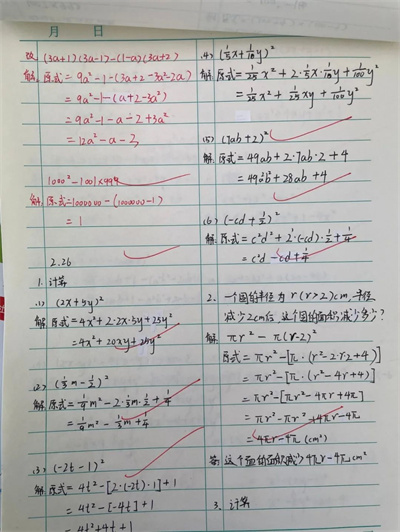 月 日
(3a+1)(3a-1)-(1-a)(3a+2)
解: 原式=9a²-1-(3a+2-3a²-2a)
=9a²-1-(a+2-3a²)
=9a²-1-a-2+3a²
=12a²-a-3
1000²-1001×999
解: 原式=1000000-(1000000-1)
=1
2.26
1. 计算
(1) (2x+5y)²
解: 原式=4x²+2·2x·5y+25y²
=4x²+20xy+25y²
(2) (⅓m-½)²
解: 原式=1/9m²-2·⅓m·½+¼
=1/9m²-⅓m+¼
(3) (-2t-1)²
解: 原式=4t²-[2·(-2t)·1]+1
=4t²-[-4t]+1
=4t²+4t+1
(4) (1/5x+1/10y)²
解: 原式=1/25x²+2·1/5x·1/10y+1/100y²
=1/25x²+1/25xy+1/100y²
(5) (7ab+2)²
解: 原式=49ab+2·7ab·2+4
=49a²b²+28ab+4
(6) (-cd+½)²
解: 原式=c²d²+2·(-cd)·½+¼
=c²d²-cd+¼
2. 一个圆的半径为r(r>2)cm,半径
减少2cm后,这个圆的面积减少多少?
解: πr²-π(r-2)²
原式=πr²-[π·(r²-2·r·2+4)]
=πr²-[π·(r²-4r+4)]
=πr²-[πr²-4πr+4π]
=πr²-πr²+4πr-4π
=4πr-4π(cm²)
答: 这个圆的面积减少4πr-4πcm²
3. 计算